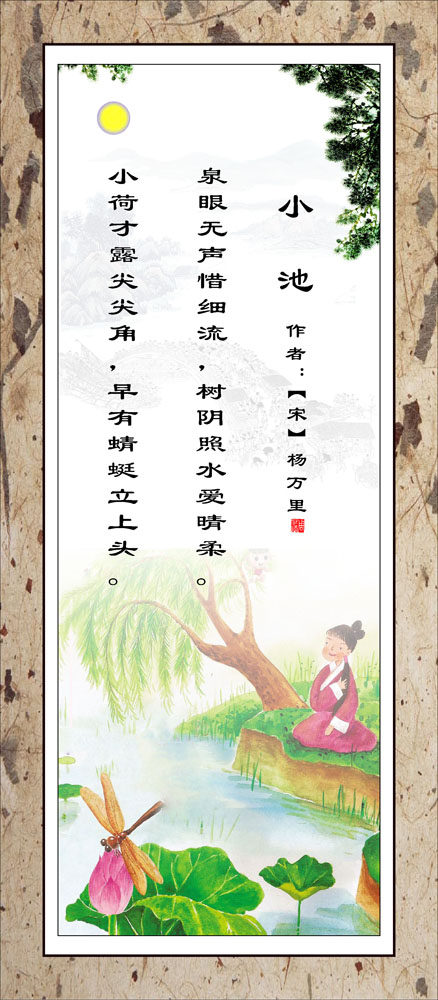 小池
作者：【宋】杨万里
泉眼无声惜细流，树阴照水爱晴柔。
小荷才露尖尖角，早有蜻蜓立上头。